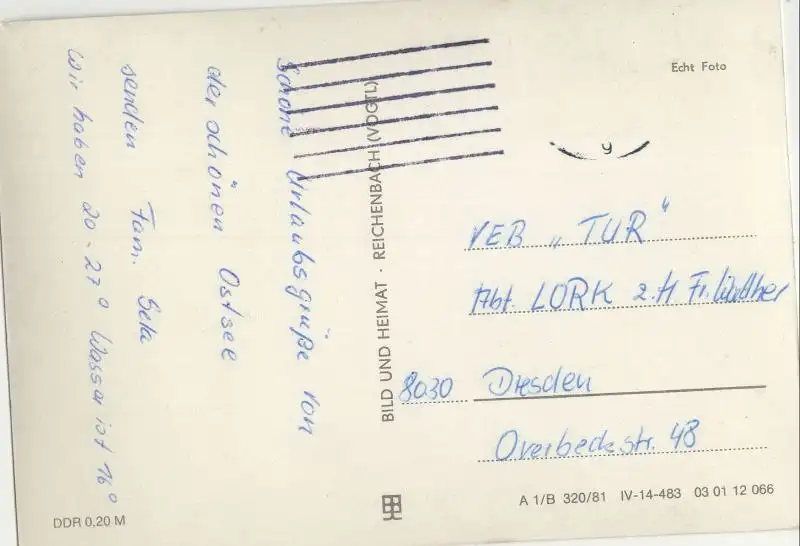 Schöne Urlaubsgrüße von
der schönen Ostsee
senden Fam.
Wir haben 20-27° Wasser ist 16°
DDR 0,20 M
BILD UND HEIMAT · REICHENBACH (VOGTL)
Echt Foto
VEB „TUR"
Abt. LORK z.H. Fr.
8030 Dresden
Overbeckstr. 48
A 1/B 320/81 IV-14-483 03 01 12 066